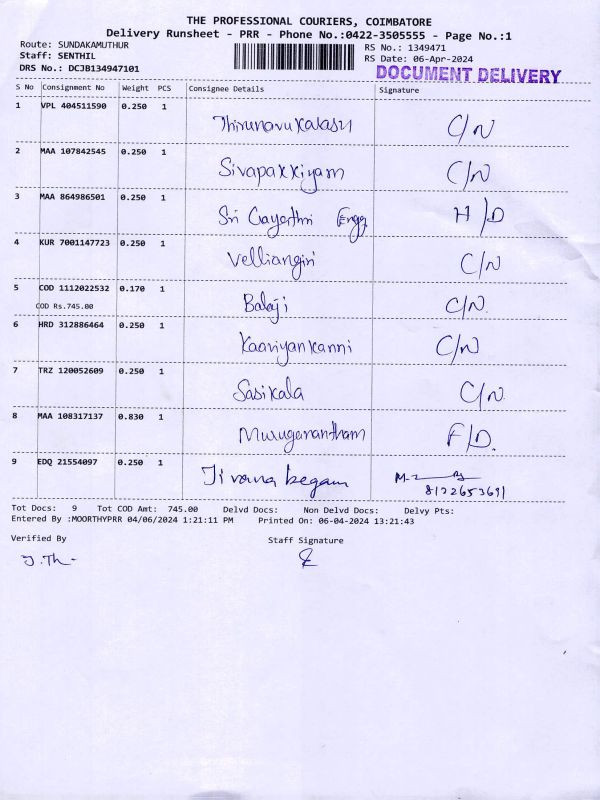 THE PROFESSIONAL COURIERS, COIMBATORE
Delivery Runsheet - PRR - Phone No.:0422-3505555 - Page No.:1
Route: SUNDAKAMUTHUR
Staff: SENTHIL
DRS No.: DCJB134947101
RS No.: 1349471
RS Date: 06-Apr-2024
DOCUMENT DELIVERY
S No Consignment No Weight PCS Consignee Details Signature
1 VPL 404511590 0.250 1 Thirunavukalasu C/N
2 MAA 107842545 0.250 1 Sivapakkiyam C/N
3 MAA 864986501 0.250 1 Sri Gayerthri Engg H/D
4 KUR 7001147723 0.250 1 Velliangiri C/N
5 COD 1112022532 0.170 1 Balaji C/N
COD Rs.745.00
6 HRD 312886464 0.250 1 Kaaviyan kanni C/N
7 TRZ 120052609 0.250 1 Sasikala C/N
8 MAA 108317137 0.830 1 Muruganantham F/D.
9 EDQ 21554097 0.250 1 begam
8122653691
Tot Docs: 9 Tot COD Amt: 745.00 Delvd Docs: Non Delvd Docs: Delvy Pts:
Entered By :MOORTHYPRR 04/06/2024 1:21:11 PM Printed On: 06-04-2024 13:21:43
Verified By Staff Signature